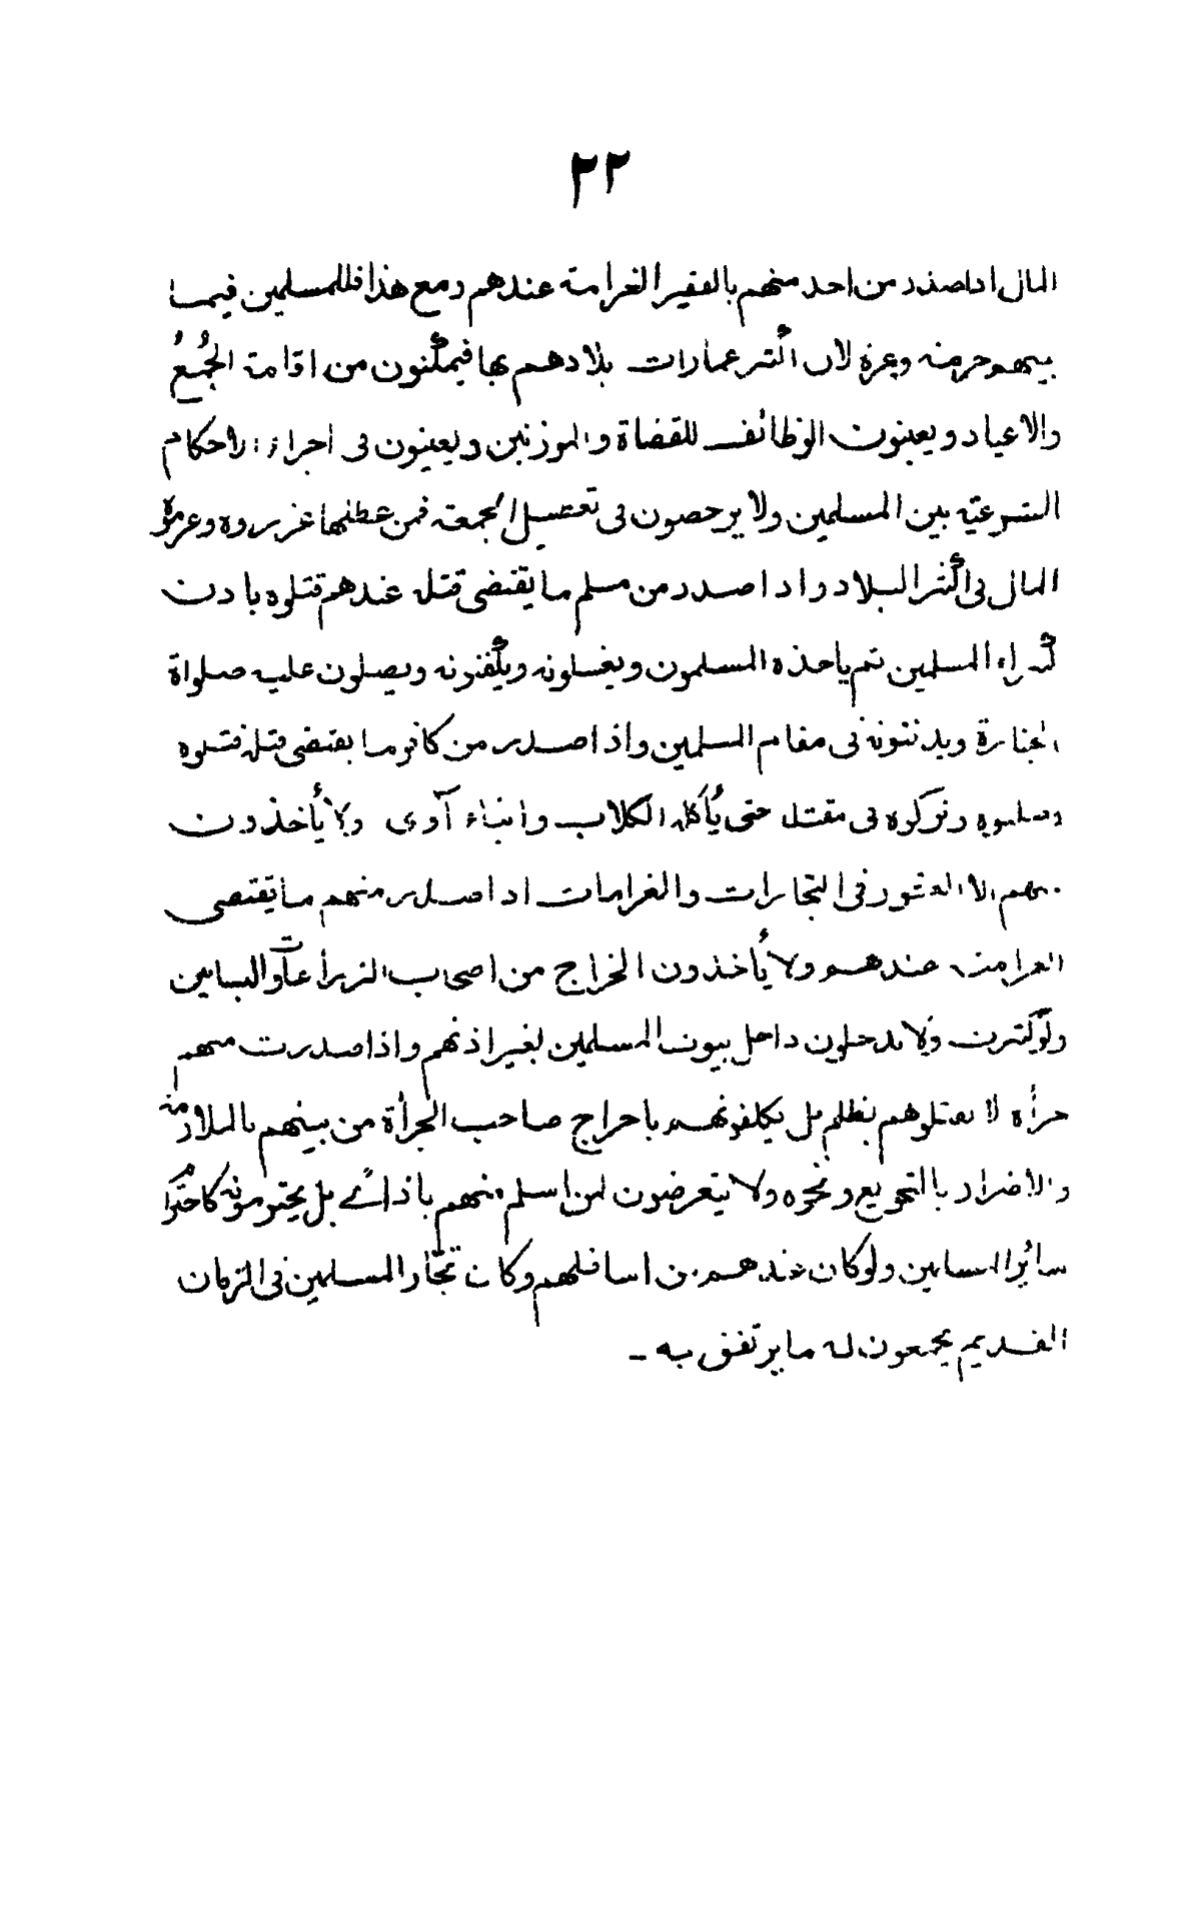 ٢٢
المال اذا صدر من احد منهم بالفقير الغرامة عندهم ومع هذا فللمسلمين فيما
بينهم حرمة وعزة لان اكثر عمارات بلادهم بها فيمكنون من اقامة الجُمُعُ
والاعياد ويعينون الوظائف للقضاة والموزنين ويعينون فى اجراء الاحكام
الشرعية بين المسلمين ولا يرخصون فى تعطيل الجمعة فمن عطلها عزروه وغرموه
المال فى اكثر البلاد واذا صدر من مسلم ما يقتضى قتله عندهم قتلوه باذن
كبراء المسلمين ثم ياخذه المسلمون ويغسلونه ويكفنونه ويصلون عليه صلواة
الجنازة ويدفنونه فى مقام المسلمين واذا صدر من كافر ما يقتضى قتله قتلوه
وصلبوه وتركوه فى مقتله حتى يُأكله الكلاب وابناء آوى ولا يأخذون
منهم الا العشور فى التجارات والغرامات اذا صدر منهم ما يقتضى
الغرامة عندهم ولا يأخذون الخراج من اصحاب الزراعات والبساتين
ولو كثرت ولا يدخلون داخل بيوت المسلمين لغير اذنهم واذا صدرت منهم
جرأة لا يقتلوهم بظلم بل يكلفونهم باخراج صاحب الجرأة من بينهم بالملازمة
والاضرار بالتجويع ونحوه ولا يتعرضون لمن اسلم منهم باذائ بل يحترمونه كاحترا
سائر المسلمين ولو كان عندهم من اسافلهم وكان تجّار المسلمين فى الزمان
القديم يجمعون له ما يرتفق به -